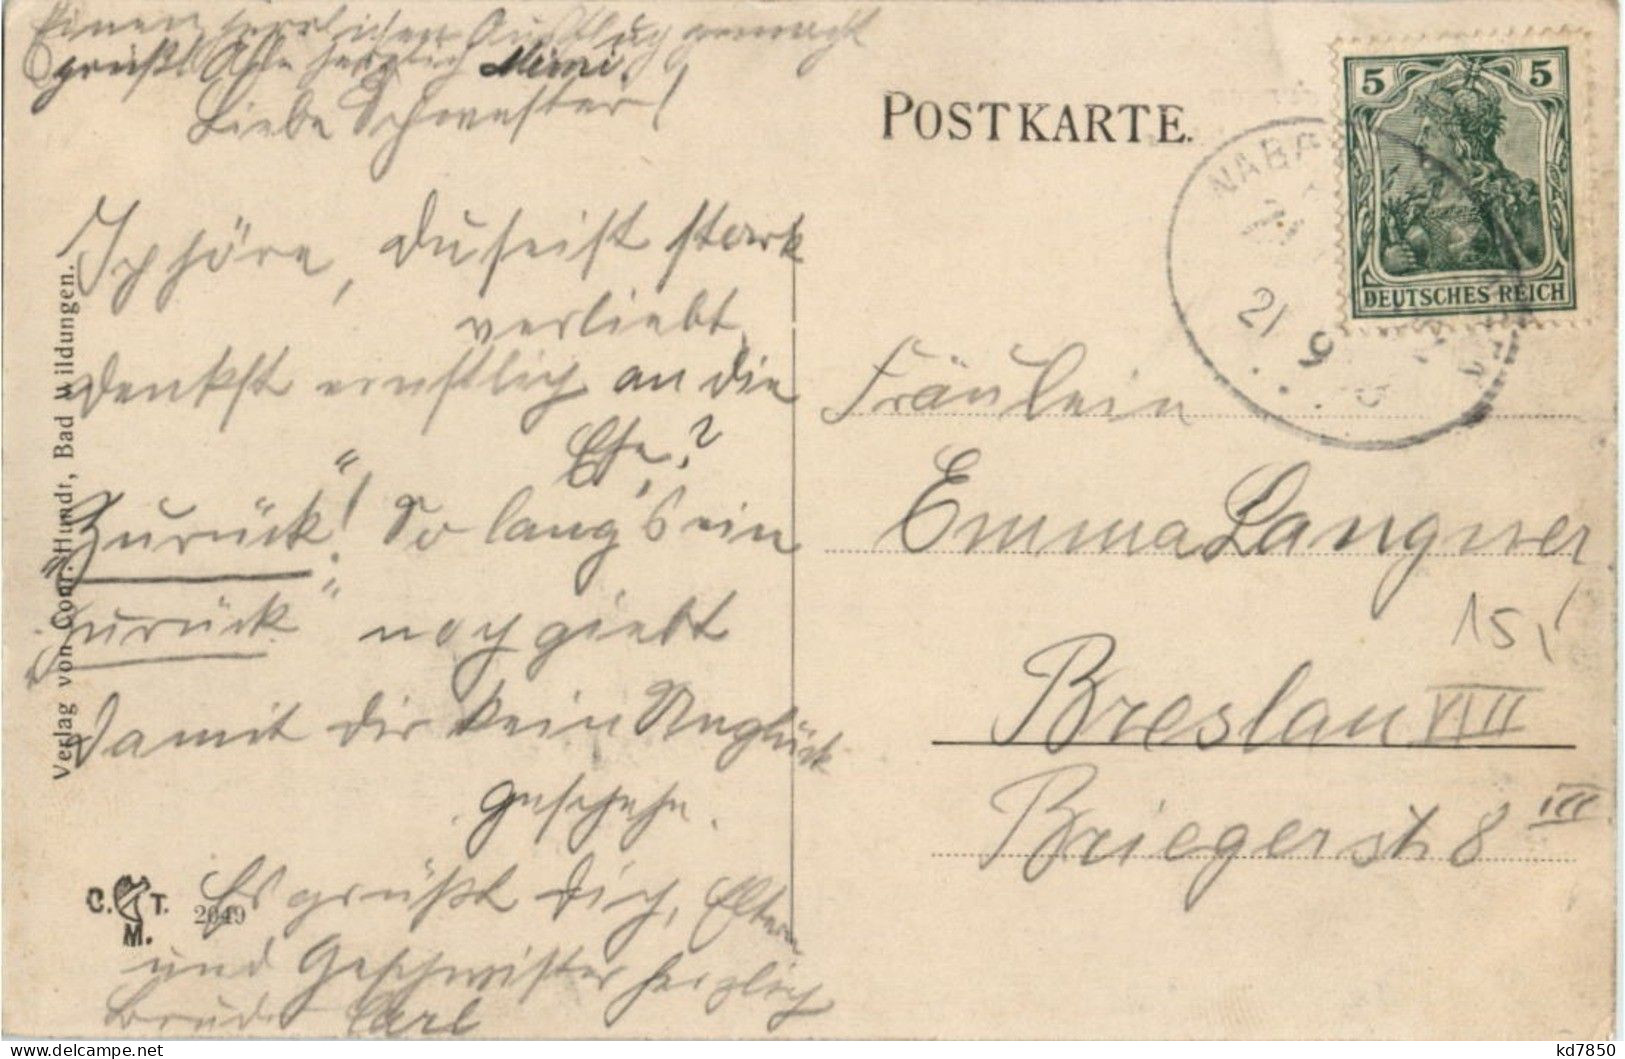 Einen herrlichen Ausflug gemacht
grüßt Alle herzlich Mimi.
Liebe Schwester!
POSTKARTE.
5 5
DEUTSCHES REICH
NABA
21 9
Ich höre, du seist stark
verliebt,
denkst ernstlich an die
Ehe?
„Zurück“! So lang's ein
„zurück“ noch giebt
damit dir kein Unglück
geschehe.
Es grüßt dich, Eltern
und Geschwister herzlich
Bruder Carl
Fräulein
Emma Langner
15,
Breslau VIII
Briegerst. 8 III
Verlag von Conr. Hundt, Bad Wildungen.
C. T.
M.
2049
kd7850